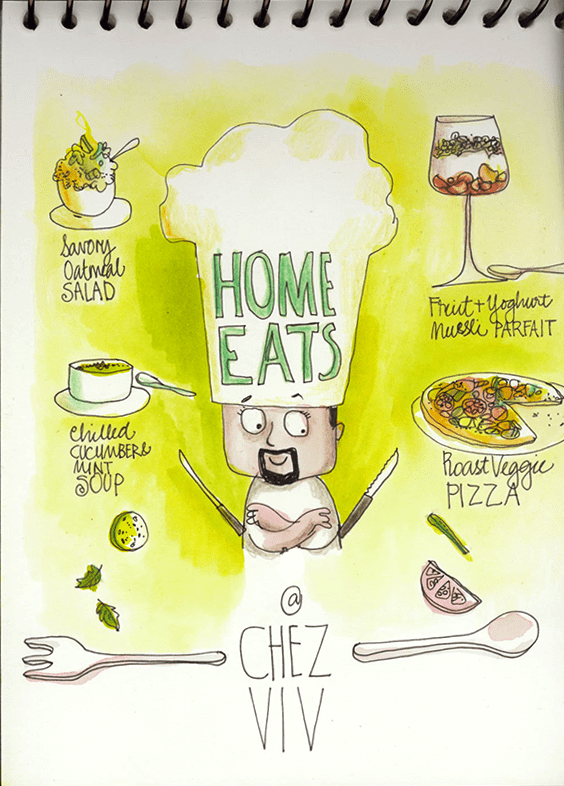 HOME
EATS
Savory
Oatmeal
SALAD
Fruit + Yoghurt
Muesli PARFAIT
chilled
CUCUMBER &
MINT
SOUP
Roast Veggie
PIZZA
@
CHEZ
VIV